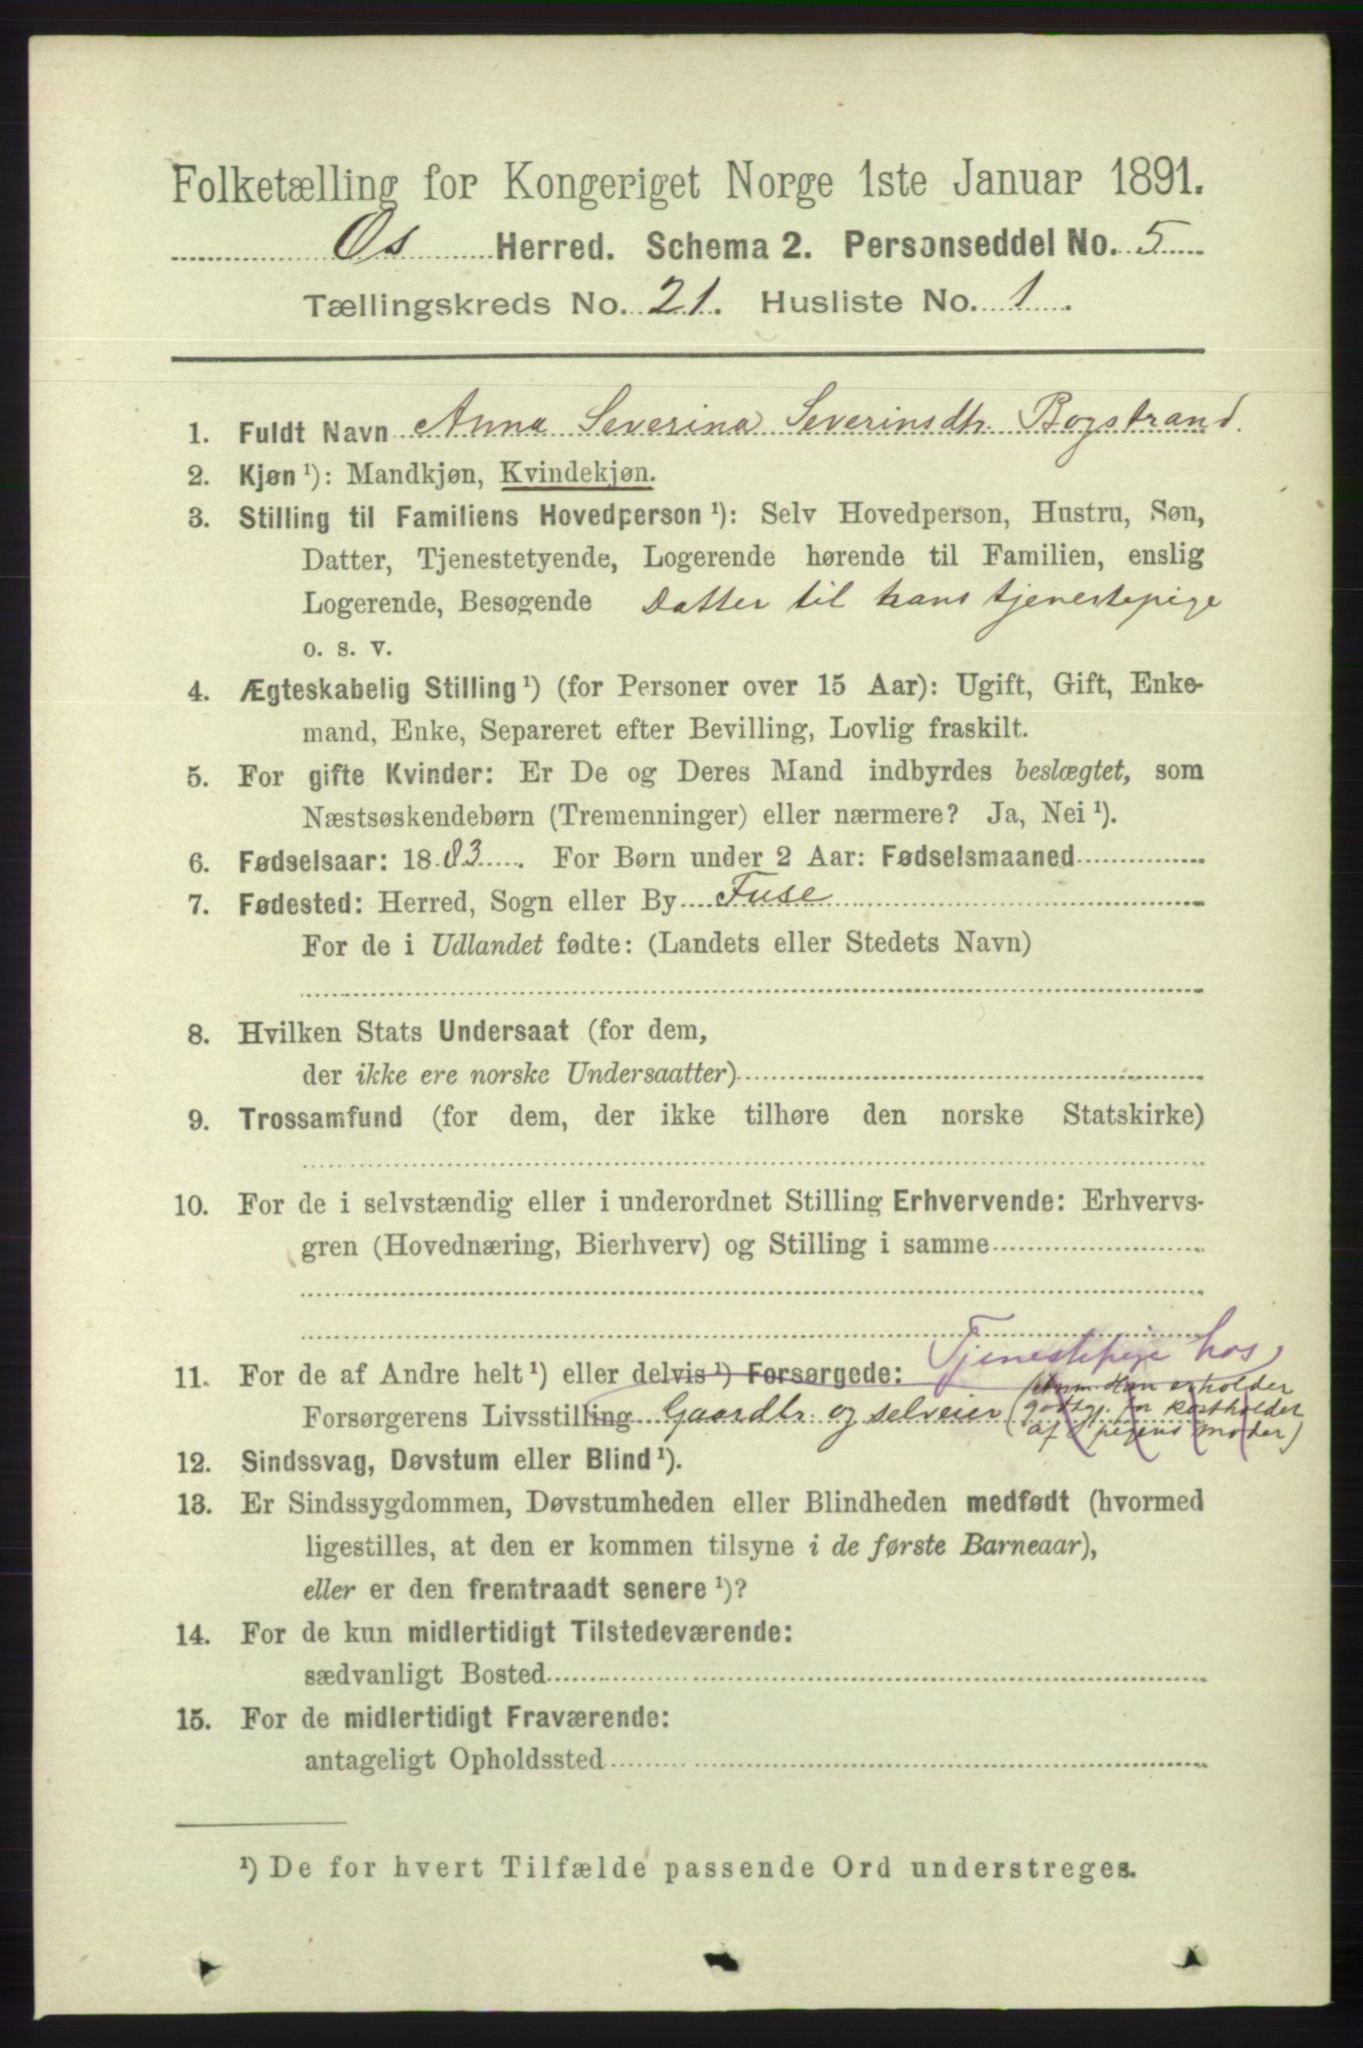 Folketælling for Kongeriget Norge 1ste Januar 1891.
Os Herred. Schema 2. Personseddel No. 5
Tællingskreds No. 21. Husliste No. 1.
1. Fuldt Navn Anna Severina Severinsdtr. Bogstrand.
2. Kjøn ¹): Mandkjøn, Kvindekjøn.
3. Stilling til Familiens Hovedperson ¹): Selv Hovedperson, Hustru, Søn,
Datter, Tjenestetyende, Logerende hørende til Familien, enslig
Logerende, Besøgende Datter til hans tjenestepige
o. s. v.
4. Ægteskabelig Stilling ¹) (for Personer over 15 Aar): Ugift, Gift, Enke-
mand, Enke, Separeret efter Bevilling, Lovlig fraskilt.
5. For gifte Kvinder: Er De og Deres Mand indbyrdes beslægtet, som
Næstsøskendebørn (Tremenninger) eller nærmere? Ja, Nei ¹).
6. Fødselsaar: 1883. For Børn under 2 Aar: Fødselsmaaned
7. Fødested: Herred, Sogn eller By Fuse
For de i Udlandet fødte: (Landets eller Stedets Navn)
8. Hvilken Stats Undersaat (for dem,
der ikke ere norske Undersaatter)
9. Trossamfund (for dem, der ikke tilhøre den norske Statskirke)
10. For de i selvstændig eller i underordnet Stilling Erhvervende: Erhvervs-
gren (Hovednæring, Bierhverv) og Stilling i samme
Tjenestepige hos
11. For de af Andre helt ¹) eller delvis ¹) Forsørgede:
(Anm. Han erholder
Forsørgerens Livsstilling Gaardbr. og selveier godtgj. for kostholder
af pigens moder)
12. Sindssvag, Døvstum eller Blind ¹).
13. Er Sindssygdommen, Døvstumheden eller Blindheden medfødt (hvormed
ligestilles, at den er kommen tilsyne i de første Barneaar),
eller er den fremtraadt senere ¹)?
14. For de kun midlertidigt Tilstedeværende:
sædvanligt Bosted
15. For de midlertidigt Fraværende:
antageligt Opholdssted
¹) De for hvert Tilfælde passende Ord understreges.